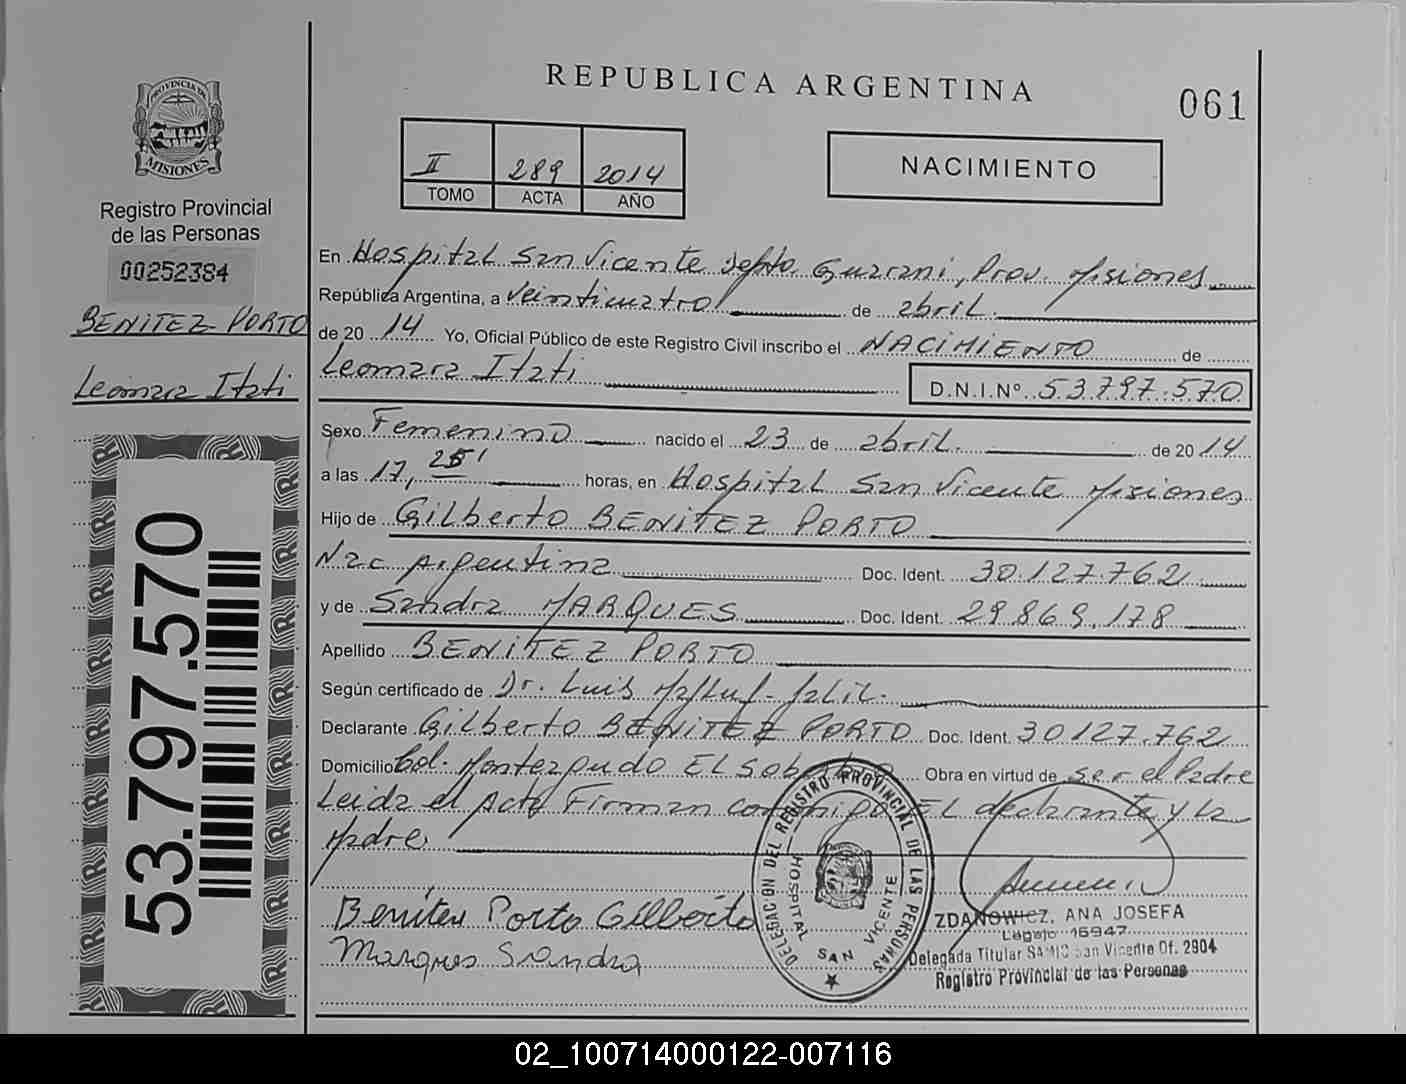 REPUBLICA ARGENTINA
061
PROVINCIA DE
MISIONES
Registro Provincial
de las Personas
00252384
BENITEZ PORTO
Leomara Itati
53.797.570
II 289 2014
TOMO ACTA AÑO
NACIMIENTO
En Hospital San Vicente Depto Guarani, Prov. Misiones
República Argentina, a veinticuatro de abril.
de 20 14 Yo, Oficial Público de este Registro Civil inscribo el NACIMIENTO de
Leomara Itati D.N.I.Nº 53.797.570
Sexo Femenino nacido el 23 de abril. de 20 14
a las 17, 25' horas, en Hospital San Vicente Misiones
Hijo de Gilberto BENITEZ PORTO
Nac Argentina Doc. Ident. 30.127.762
y de Sandra MARQUES Doc. Ident. 29.869.178
Apellido BENITEZ PORTO
Según certificado de Dr. Luis Jalil.
Declarante Gilberto BENITEZ PORTO Doc. Ident. 30127.762
Domicilio Col. Monteagudo El Soberbio Obra en virtud de ser el Padre
Leida el Acta Firman conmigo El declarante y la
Madre
Benitez Porto Gilberto
Marques Sandra
DELEGACION DEL REGISTRO PROVINCIAL DE LAS PERSONAS
HOSPITAL SAN VICENTE
ZDANOWICZ, ANA JOSEFA
Legajo 16947
Delegada Titular SAMIC San Vicente Of. 2904
Registro Provincial de las Personas
02_100714000122-007116